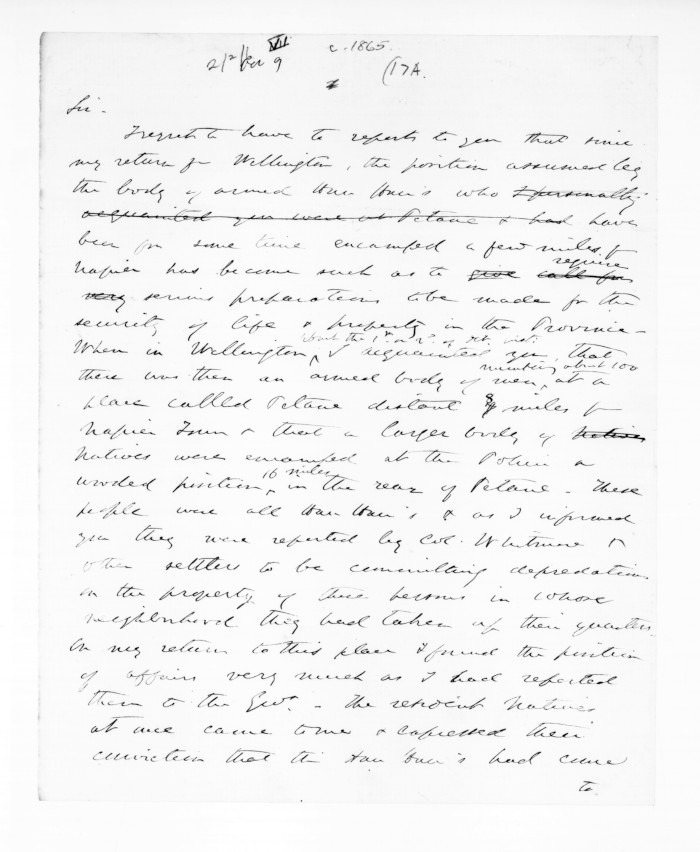 VII c. 1865.
9 (17A.
Sir -
I regret to have to report to you that since
my return fr Wellington, the position assumed by
the body of armed Hau Hau's who I personally
acquainted you were at Petane & had have
been for some time encamped a few miles fr
require
Napier has become such as to give call for
very serious preparations to be made for the
security of life & property in the Province -
about the 1st or 2d of
When in Wellington, I acquainted you, that
numbering about 100
there was then an armed body of men, at a
place called Petane distant 8 miles fr
Napier Town & that a larger body of Natives
Natives were encamped at the Pohui a
16 miles
wooded position, in the rear of Petane - These
people were all Hau Hau's & as I informed
you they were reported by Col. Whitmore &
other settlers to be committing depredations
on the property of those persons in whose
neighborhood they had taken up their quarters.
On my return to this place I found the position
of affairs very much as I had reported
them to the Govt. - The resident Natives
at once came to me & expressed their
conviction that the Hau Hau's had come
to